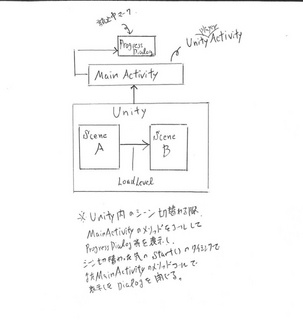 Progress
Dialog
Main Activity
Unity Activity
Unity
Scene
A
Scene
B
LoadLevel
※ Unity内のシーン切替わる際、
MainActivityのメソッドをコールして
ProgressDialogを表示し、
シーン切替わった先の Start()のタイミングで
MainActivityのメソッドコールで
Dialogを閉じる。